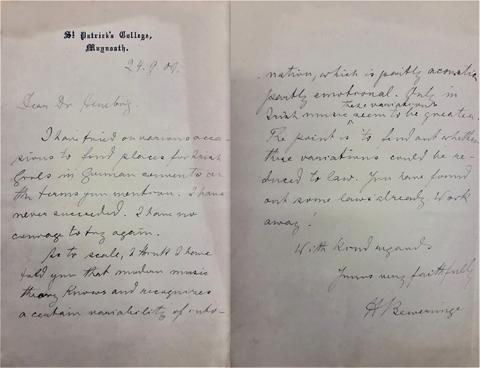 St. Patrick's College,
Maynooth.
24.9.09.
Dear Dr. Henebry,
I have tried on various occa-
sions to find places for Irish
Girls in German convents on
the terms you mention. I have
never succeeded. I have no
courage to try again.
As to scale, I think I have
told you that modern music
theory knows and recognizes
a certain variability of into-
nation, which is partly acoustic
partly emotional. Only in
these variations
Irish music seem to be greater.
The point is to find out whether
these variations could be re-
duced to law. You have found
out some laws already. Work
away!
With kind regards
Yours very faithfully
H Bewerunge